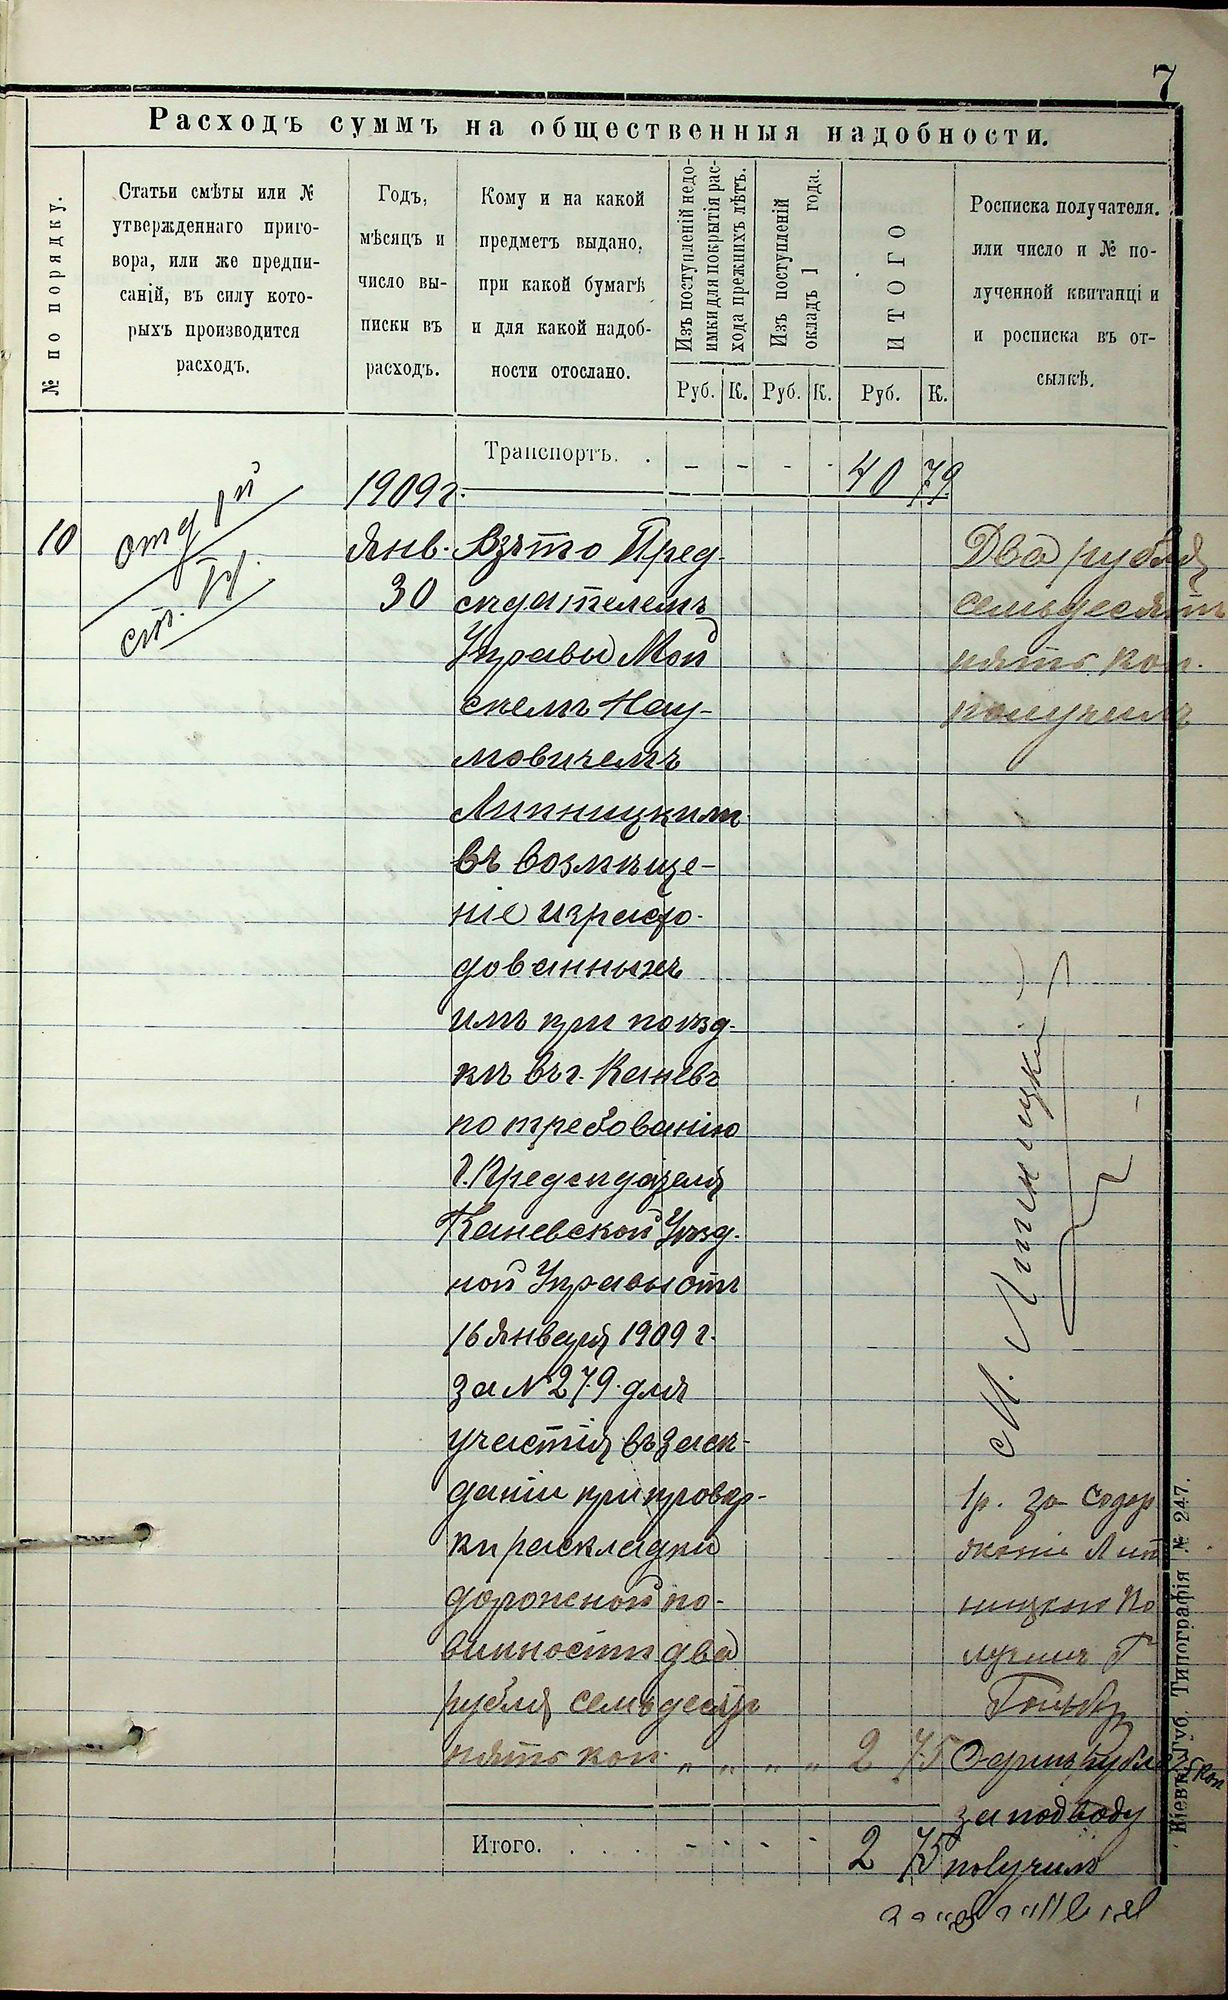 7
Расходъ суммъ на общественныя надобности.
№ по порядку.
Статьи смѣты или №
утвержденнаго приго-
вора, или же предпи-
саній, въ силу кото-
рыхъ производится
расходъ.
Годъ,
мѣсяцъ и
число вы-
писки въ
расходъ.
Кому и на какой
предметъ выдано,
при какой бумагѣ
и для какой надоб-
ности отослано.
Изъ поступленій недо-
имки для покрытія рас-
хода прежнихъ лѣтъ.
Изъ поступленій
окладъ 1 года.
ИТОГО
Росписка получателя.
или число и № по-
лученной квитанці и
и росписка въ от-
сылкѣ.
Руб. К. Руб. К. Руб. К.
Транспортъ. . - - - - 40 79
1909 г.
10
отд 1й
ст.
Янв.
30
Взято Пред-
сѣдателемъ
Управы Мой
сеемъ Нау-
мовичемъ
Липницкимъ
въ возмѣще-
ніе израсхо-
дованныхъ
имъ при поѣзд-
кѣ въ г. Каневъ
по требованію
Г. Предсѣдателя
Каневской Уѣзд-
ной Управы отъ
16 Января 1909 г.
за № 279 для
участія въ засѣ-
даніи при провѣр-
ки раскладки
дорожной по-
винности два
рубля семьдесятъ
пять коп. " " " " 2 75
Итого. . . . - - - - 2 75
Два рубля
семьдесятъ
пять коп.
получилъ
М. Липницкій
1р. за содер
жаніе Лип
ницкій По
лучилъ Г
Одинъ рубль 75 коп
за подводу
получилъ
Кіевъ, Губ. Типографія № 247.